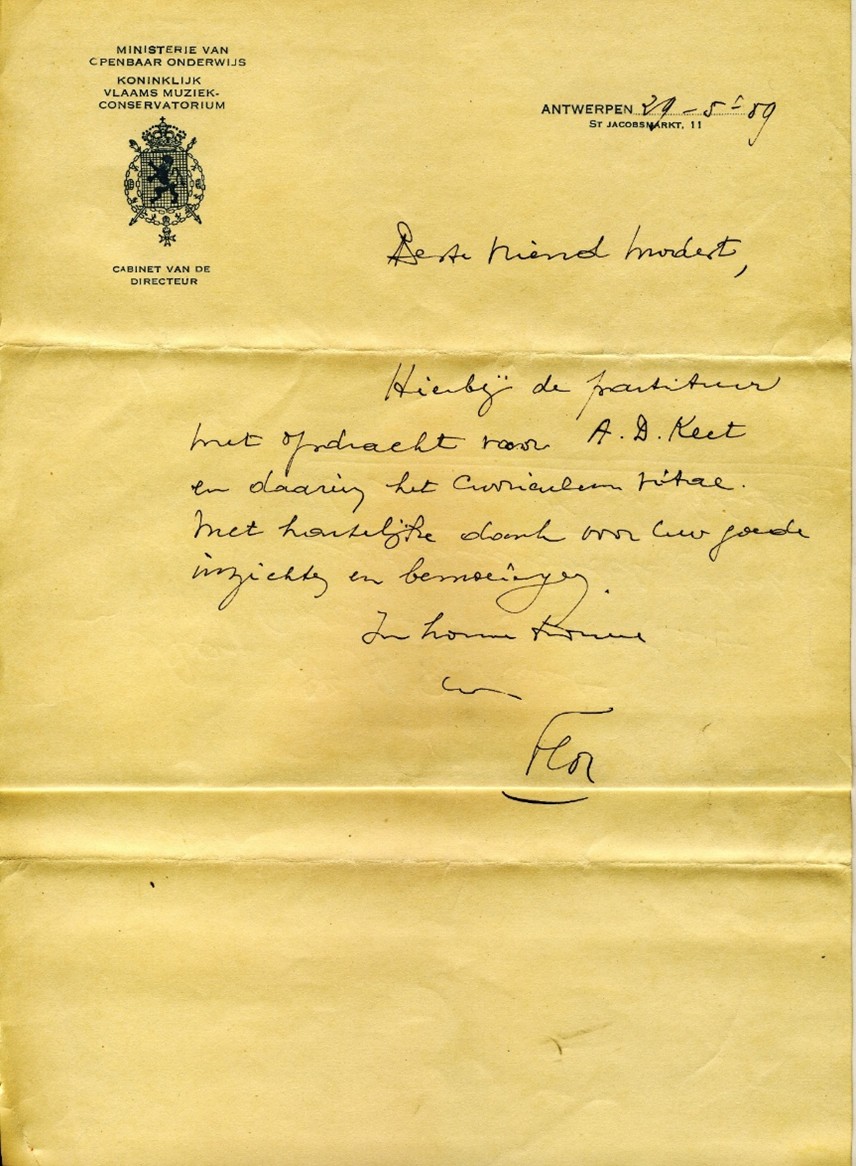 MINISTERIE VAN
OPENBAAR ONDERWIJS
KONINKLIJK
VLAAMS MUZIEK-
CONSERVATORIUM
CABINET VAN DE
DIRECTEUR
ANTWERPEN 29-5-59
ST JACOBSMARKT, 11
Beste Vriend Modest,
Hierbij de partituur
met opdracht voor A.D. Keet
en daarin het Curriculum Vitae.
Met hartelijke dank voor Uw goede
inzichten en bemoeiingen.
In trouw
Uw
Flor